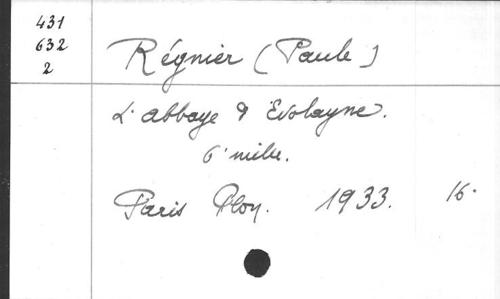 431
632
2
Régnier (Paule)
L'abbaye d'Evolayne.
6e mille.
Paris Plon. 1933. 16°